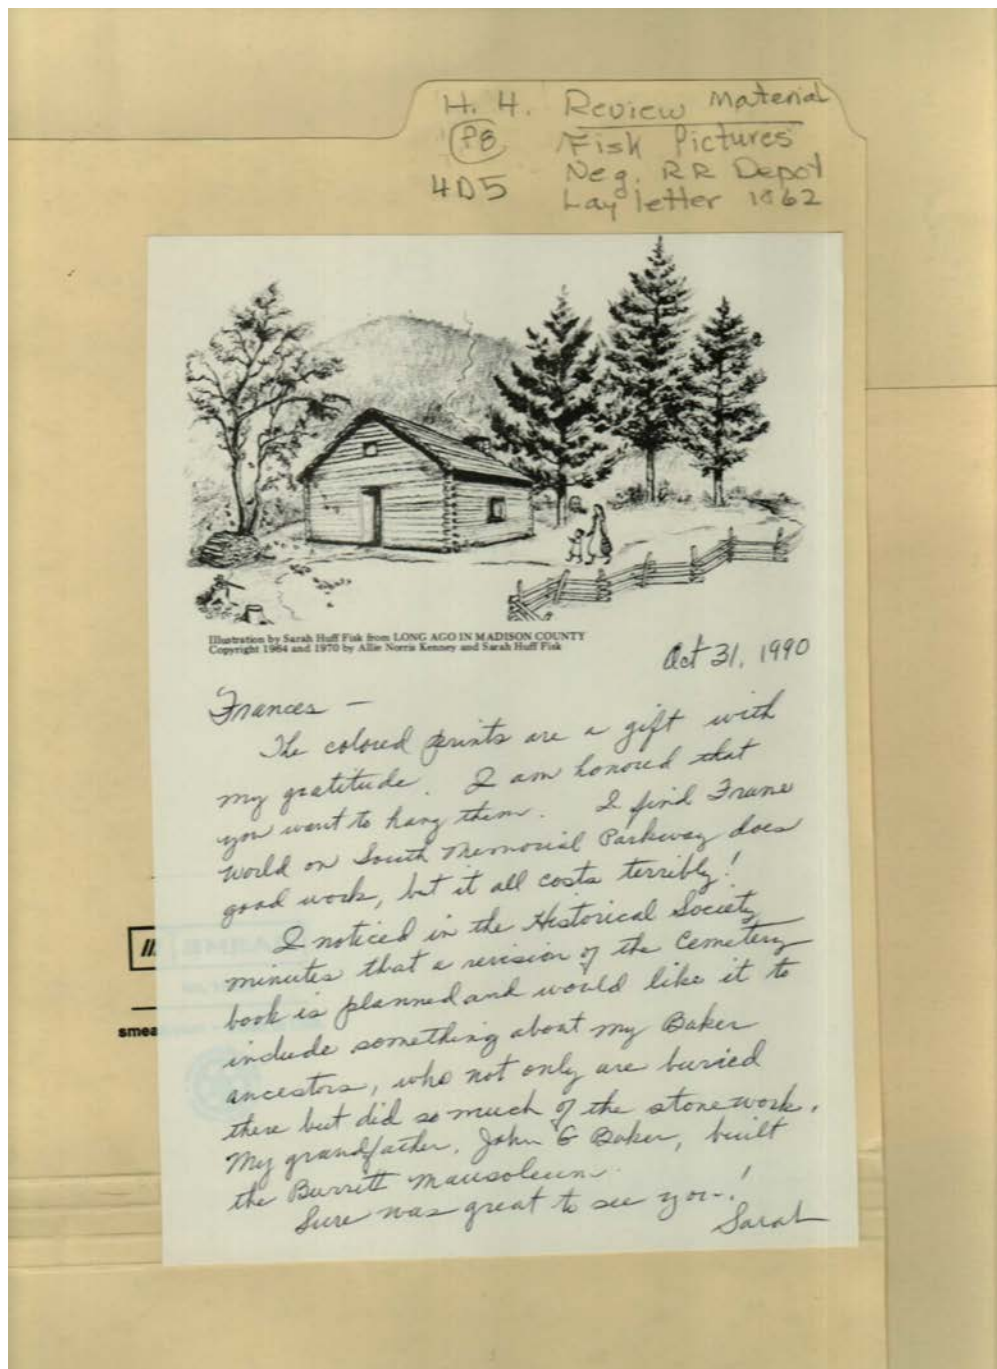 H. H. Review Material
P8 Fisk Pictures
Neg. RR Depot
4D5 Lay letter 1862
Illustration by Sarah Huff Fisk from LONG AGO IN MADISON COUNTY
Copyright 1964 and 1970 by Allie Norris Kenney and Sarah Huff Fisk
Oct 31, 1990
Frances —
The colored prints are a gift with
my gratitude. I am honored that
you want to hang them. I find Frame
World on South Memorial Parkway does
good work, but it all costs terribly!
I noticed in the Historical Society
minutes that a revision of the Cemetery
book is planned and would like it to
include something about my Baker
ancestors, who not only are buried
there but did so much of the stonework.
My grandfather, John G Baker, built
the Burritt mausoleum.
Sure was great to see you—!
Sarah
smea